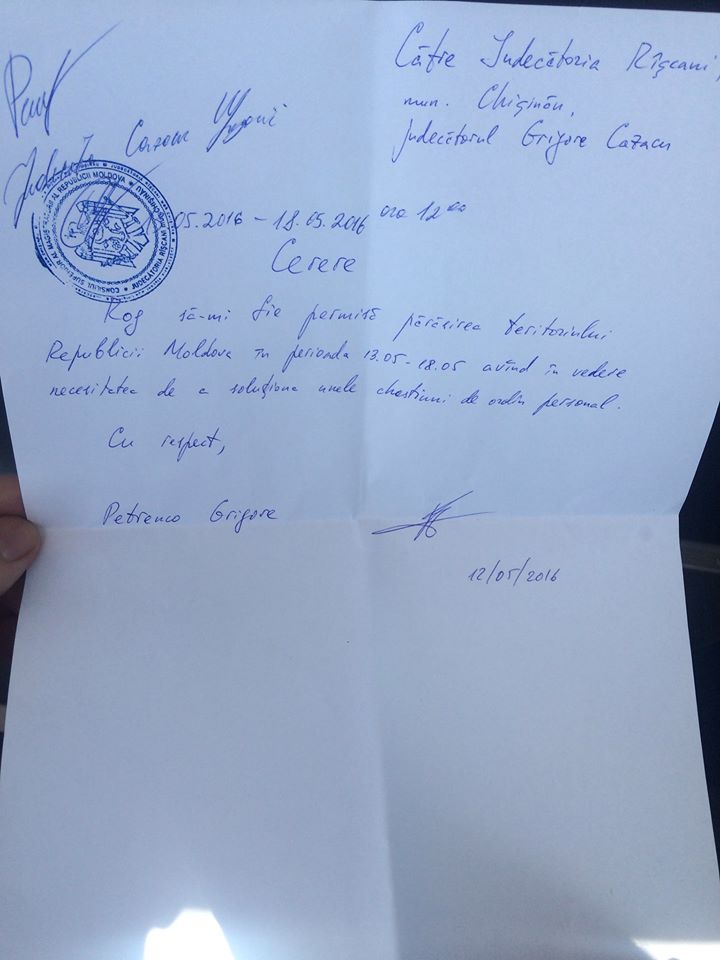 Către Judecătoria Rîșcani,
mun. Chișinău,
judecătorul Grigore Cazacu
05.2016 – 18.05.2016 ora 12 00
CONSILIUL SUPERIOR AL MAGISTRATURII AL REPUBLICII MOLDOVA
JUDECĂTORIA RÎȘCANI MUN. CHIȘINĂU
Cerere
Rog să-mi fie permisă părăsirea teritoriului
Republicii Moldova în perioada 13.05-18.05 avînd în vedere
necesitatea de a soluționa unele chestiuni de ordin personal.
Cu respect,
Petrenco Grigore
12/05/2016